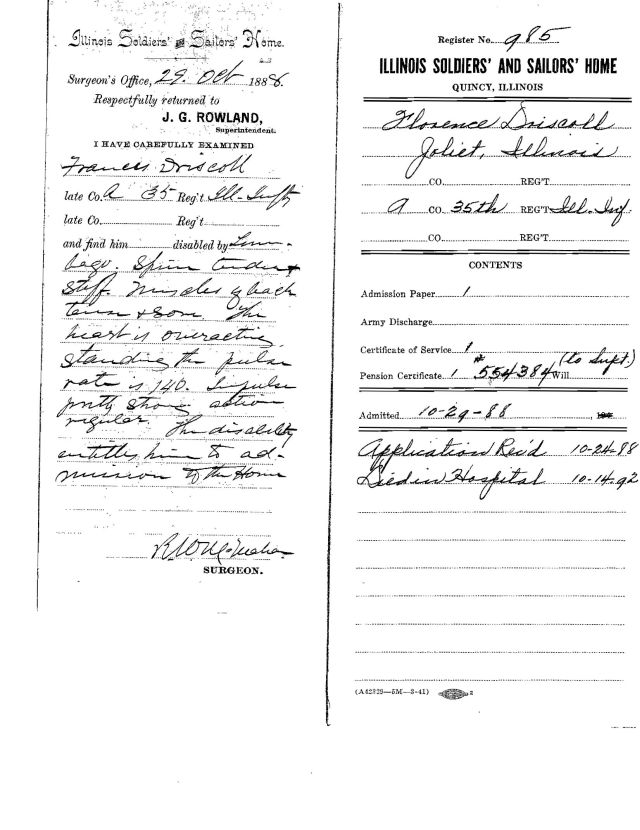 Illinois Soldiers' and Sailors' Home.
Surgeon's Office, 29. Oct 1888.
Respectfully returned to
J. G. ROWLAND,
Superintendent.
I HAVE CAREFULLY EXAMINED
Francis Driscoll
late Co. A 35 Reg't Ill. Infty
late Co. Reg't
and find him disabled by Lum-
bago. Spine tender &
stiff. Muscles of back
tense & sore. The
heart is overacting.
standing the pulse
rate is 140. Impulse
pretty strong action
regular. The disability
entitles him to ad-
mission to the Home
SURGEON.
Register No. 985
ILLINOIS SOLDIERS' AND SAILORS' HOME
QUINCY, ILLINOIS
Florence Driscoll
Joliet, Illinois
CO. REG'T.
A CO. 35th REG'T Ill. Inf.
CO. REG'T.
CONTENTS
Admission Paper 1
Army Discharge
Certificate of Service 1
Pension Certificate 1 #554384 Will (to Supt.)
Admitted 10-29-88
Application Rec'd 10-24-88
Died in Hospital 10-14-92
(A42829—5M—3-41) 2